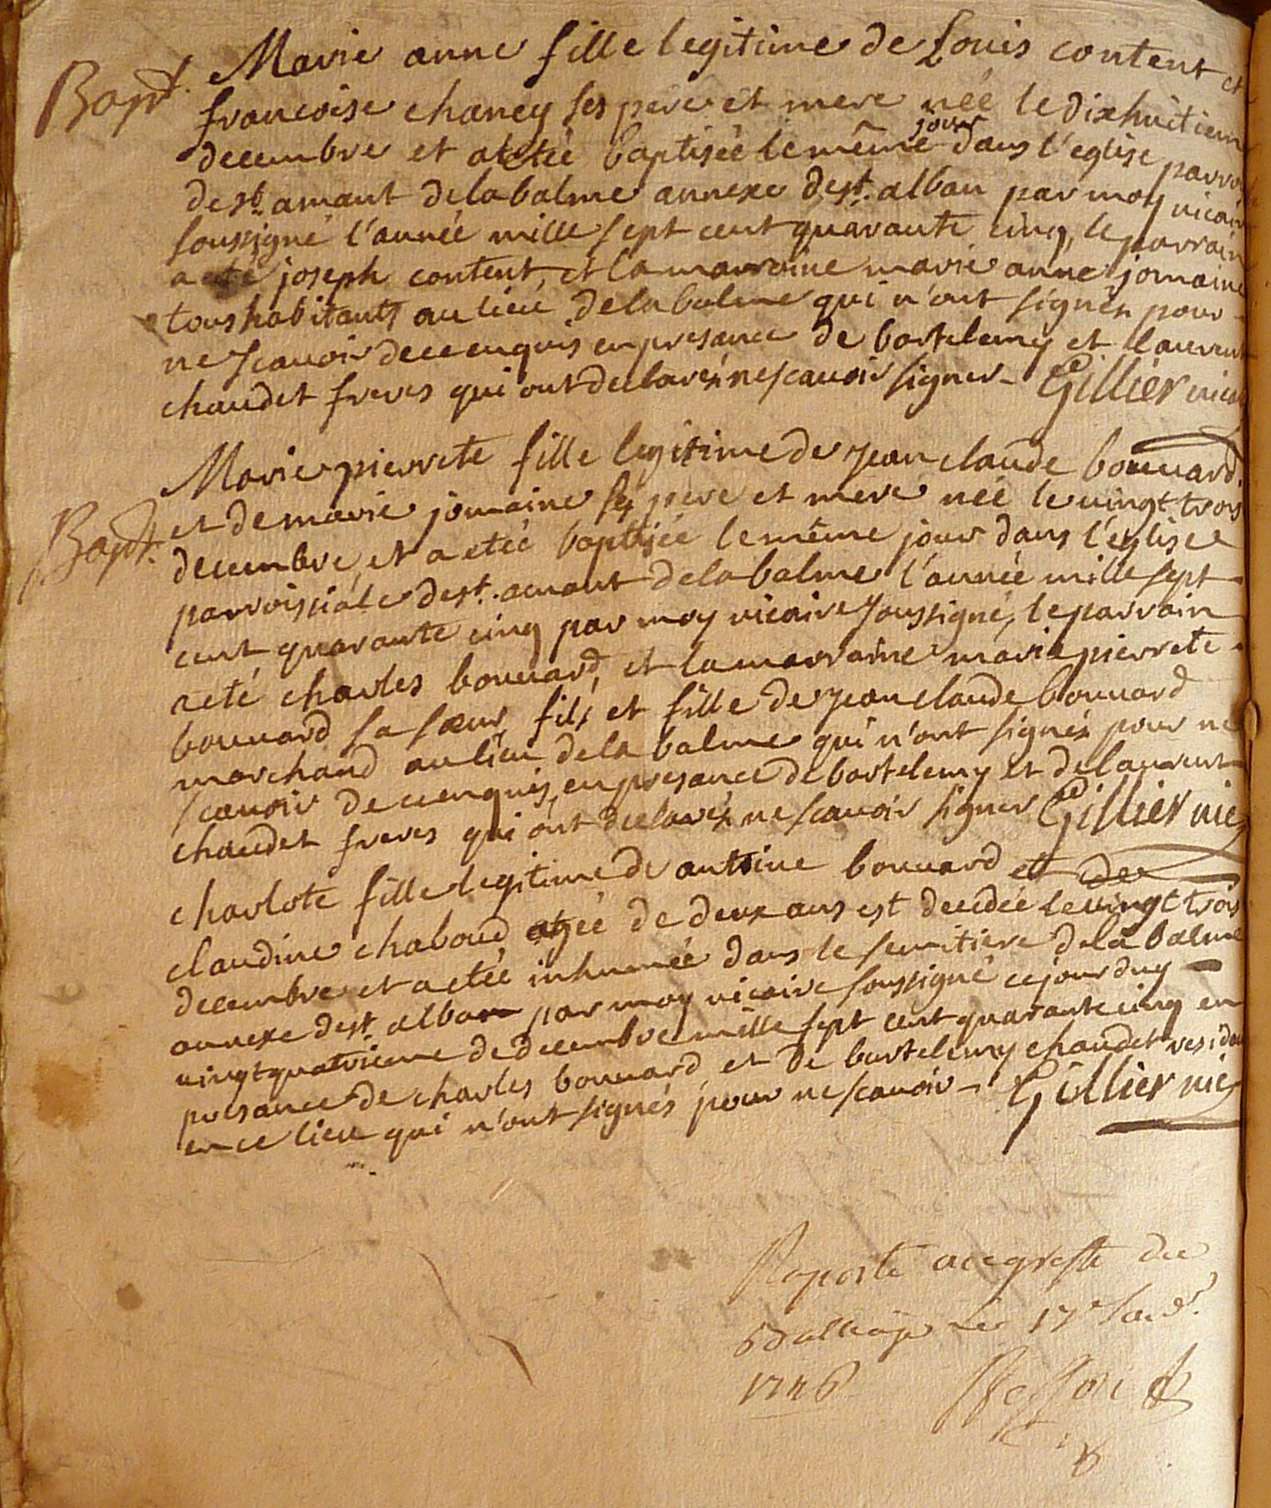 Bapt. Marie anne fille legitime de Louis content et
francoise chaney ses pere et mere née le dixhuitiem
decembre et a etée baptisée le même jour dans l'eglise parro
de st. amant de la balme annexe de st. alban par moy vicaire
soussigné l'année mille sept cent quarante cinq, le parrain
a eté joseph content, et la marraine marie anne jomaine
tous habitants au lieu de la balme qui n'ont signés pour
ne scavoir de ce enquis en presance de bartelemy et laurent
chaudet freres qui ont declarés ne scavoir signer - Gillier vic
Bapt. Marie pierrete fille legitime de jean claude bouvard
et de marie jomaine ses pere et mere née le vingt trois
decembre, et a etée baptisée le même jour dans l'eglise
parroissiale de st. amant de la balme l'année mille sept
cent quarante cinq par moy vicaire soussigné, le parrain
a eté charles bouvard, et la marraine marie pierrete
bouvard sa sœur, fils et fille de jean claude bouvard
marchand au lieu de la balme qui n'ont signés pour ne
scavoir de ce enquis, en presance de bartelemy et de laurent
chaudet freres qui ont declarés ne scavoir signer Gillier vic
charlote fille legitime de antoine bouvard et de
claudine chaboud agée de deux ans est decedée le vingt trois
decembre et a etée inhumée dans le semitiere de la balme
annexe de st. alban par moy vicaire soussigné ce jourduy
vingt quatrieme de decembre mille sept cent quarante cinq en
presance de charles bouvard et de bartelemy chaudet resida
en ce lieu qui n'ont signés pour ne scavoir - Gillier vic
Raporté au greffe du
le 17e
1746